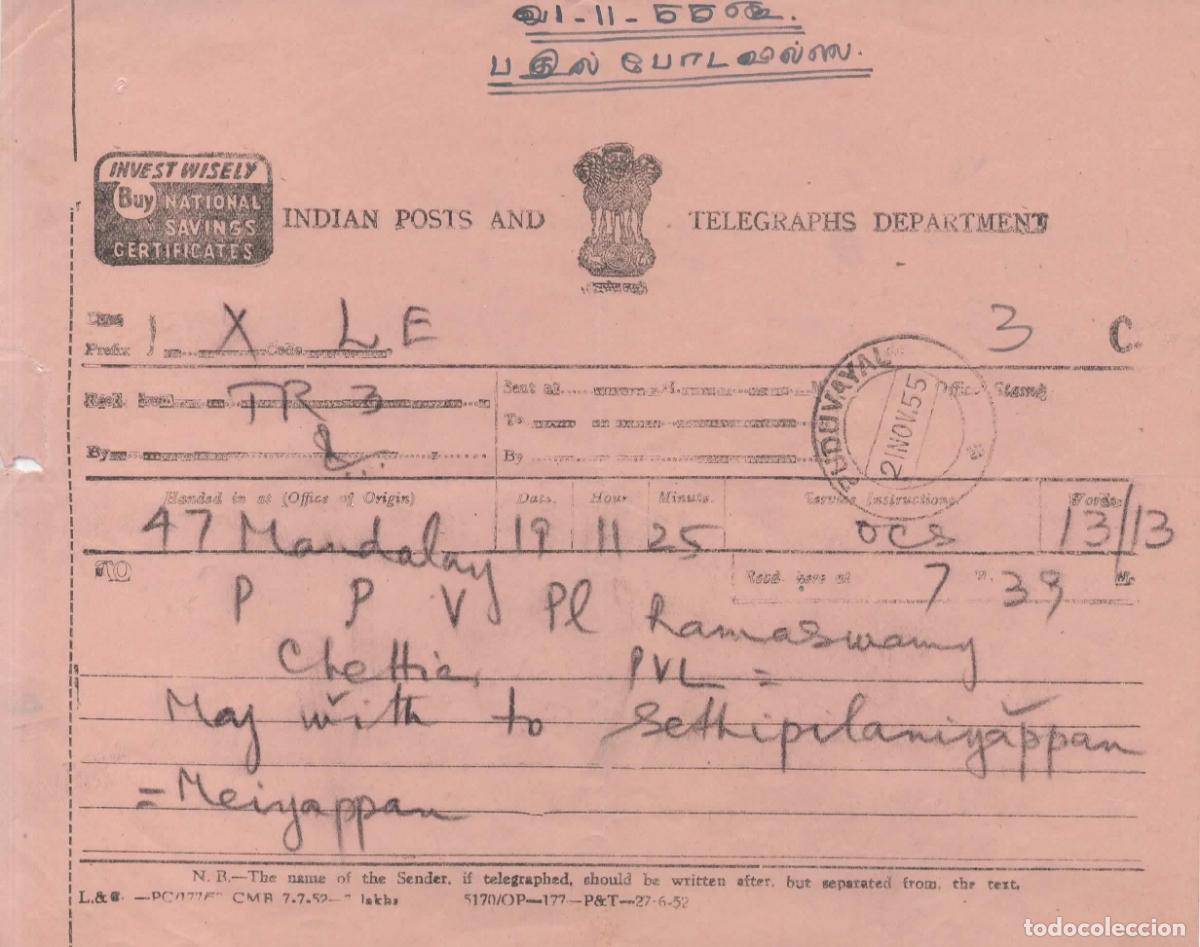 உ௧-11-௫௫௳.
பதில் போடவில்லை.
INVEST WISELY
Buy NATIONAL
SAVINGS
CERTIFICATES
INDIAN POSTS AND TELEGRAPHS DEPARTMENT
Prefix X Code L E 3 C.
TR 3 Sent at
To
By By
PUDUVAYAL
21 NOV. 55
Handed in at (Office of Origin) Date. Hour Minute. Service Instructions. Words.
47 Mandalay 19 11 25 ocs 13/13
TO Recd. here at 7 H. 39 M.
P P V Pl Ramaswamy
Chettiar PVL =
May with to Sethipilaniyappan
= Meiyappan
N. B.—The name of the Sender, if telegraphed, should be written after, but separated from, the text.
5170/OP—177—P&T—27-6-52
todocoleccion